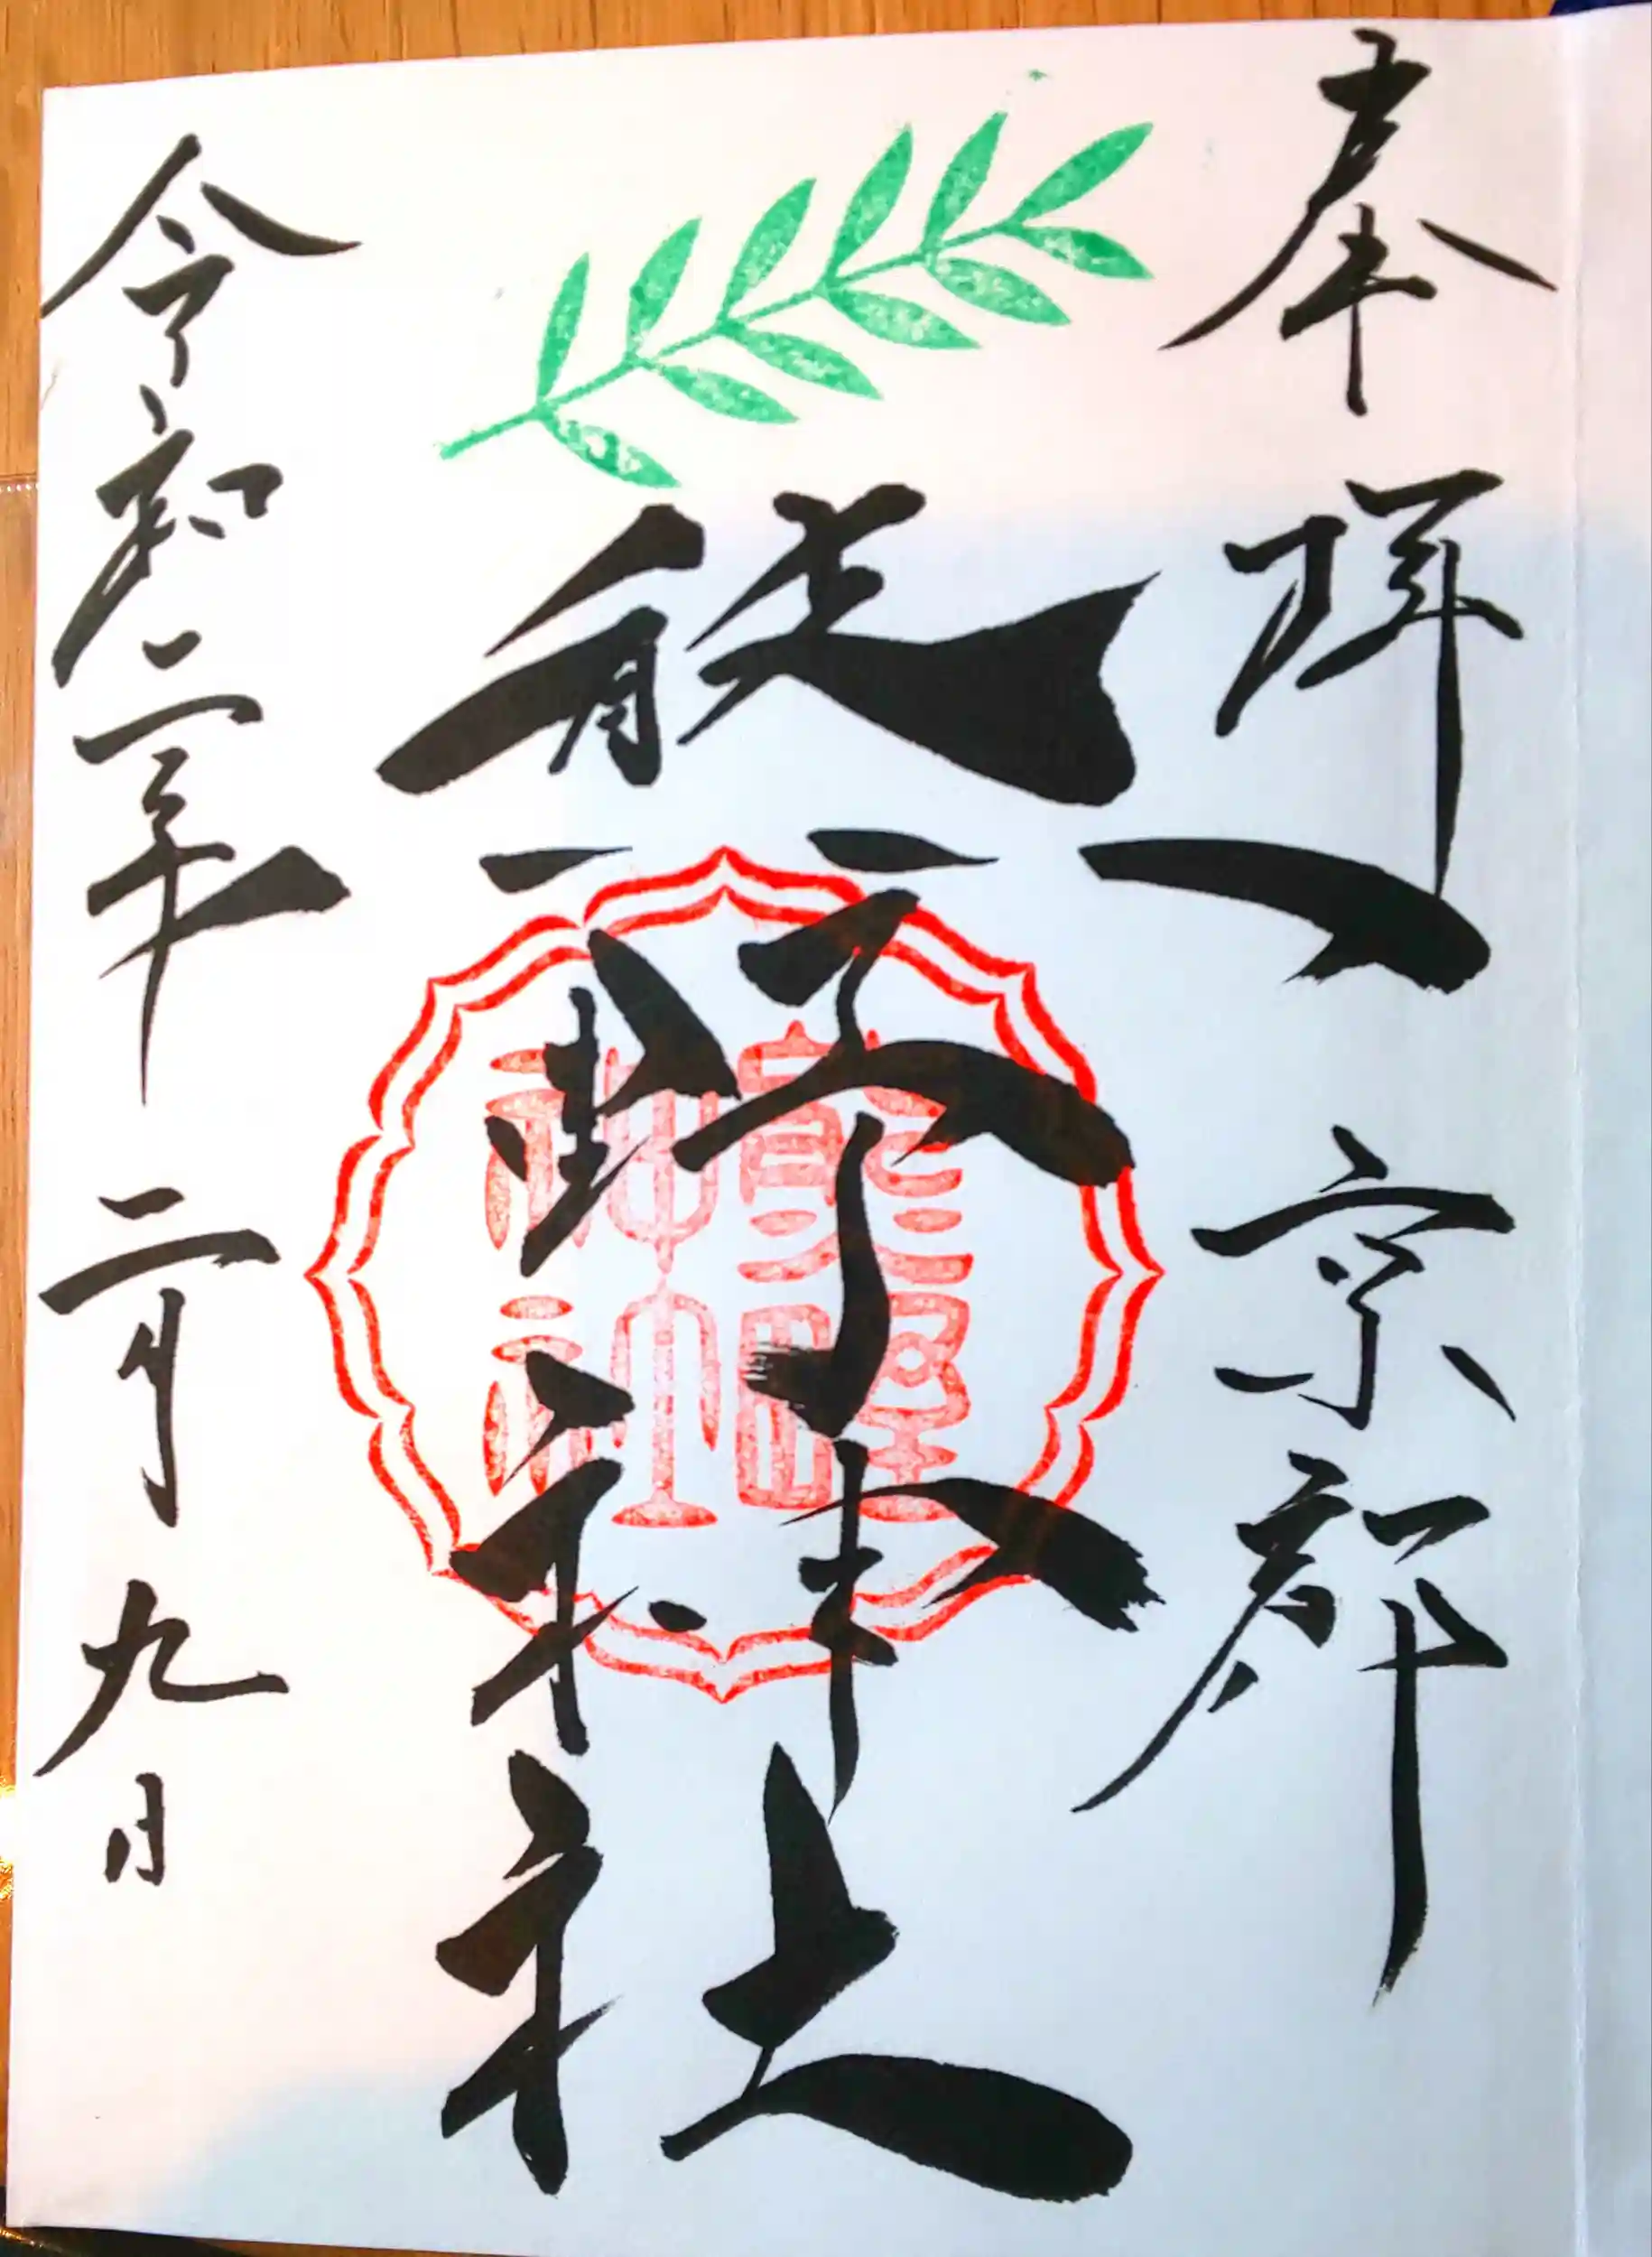 奉拝 京都
熊野神社
令和二年 二月九日
熊野
神社